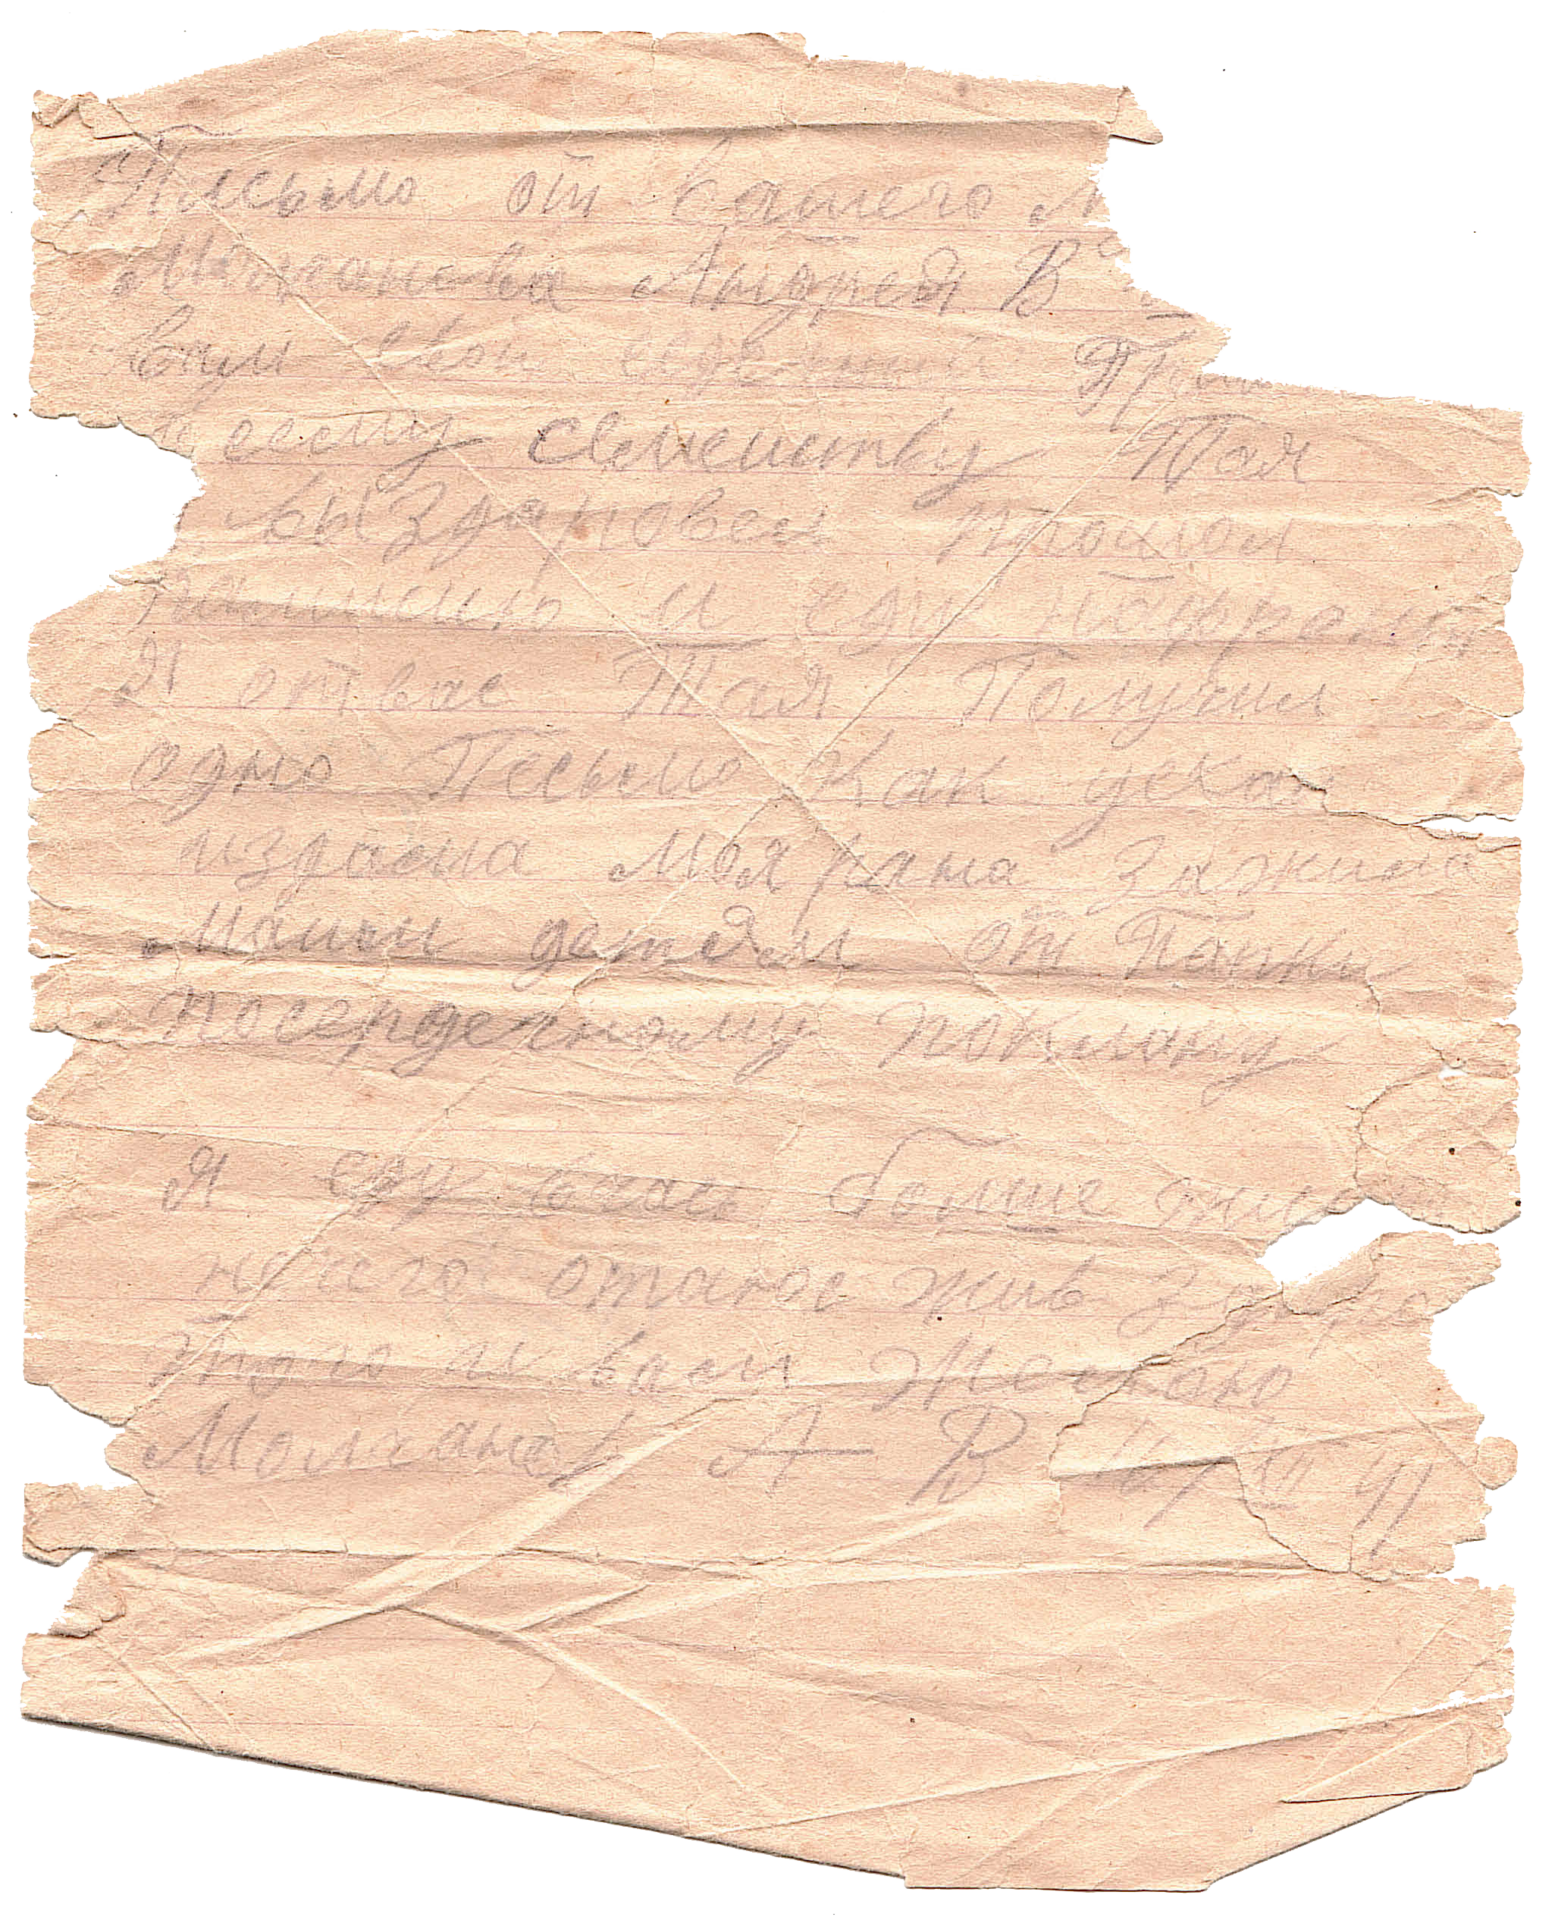 Письмо от вашего м
Молчанова Андрея В
вам свой сердечный При
и всему семейству Тая
выздоровел прошол
комисию и еду нафронт
Я отвас Тая Получил
одно Песьмо как уехал
издома Моя рана зажила
Маим детям от Папки
посердечному поклону
Я еду вчас больше писат
нечего отаюс жив здоро
того и вам Желаю
Молчанов А В 14/XII 41